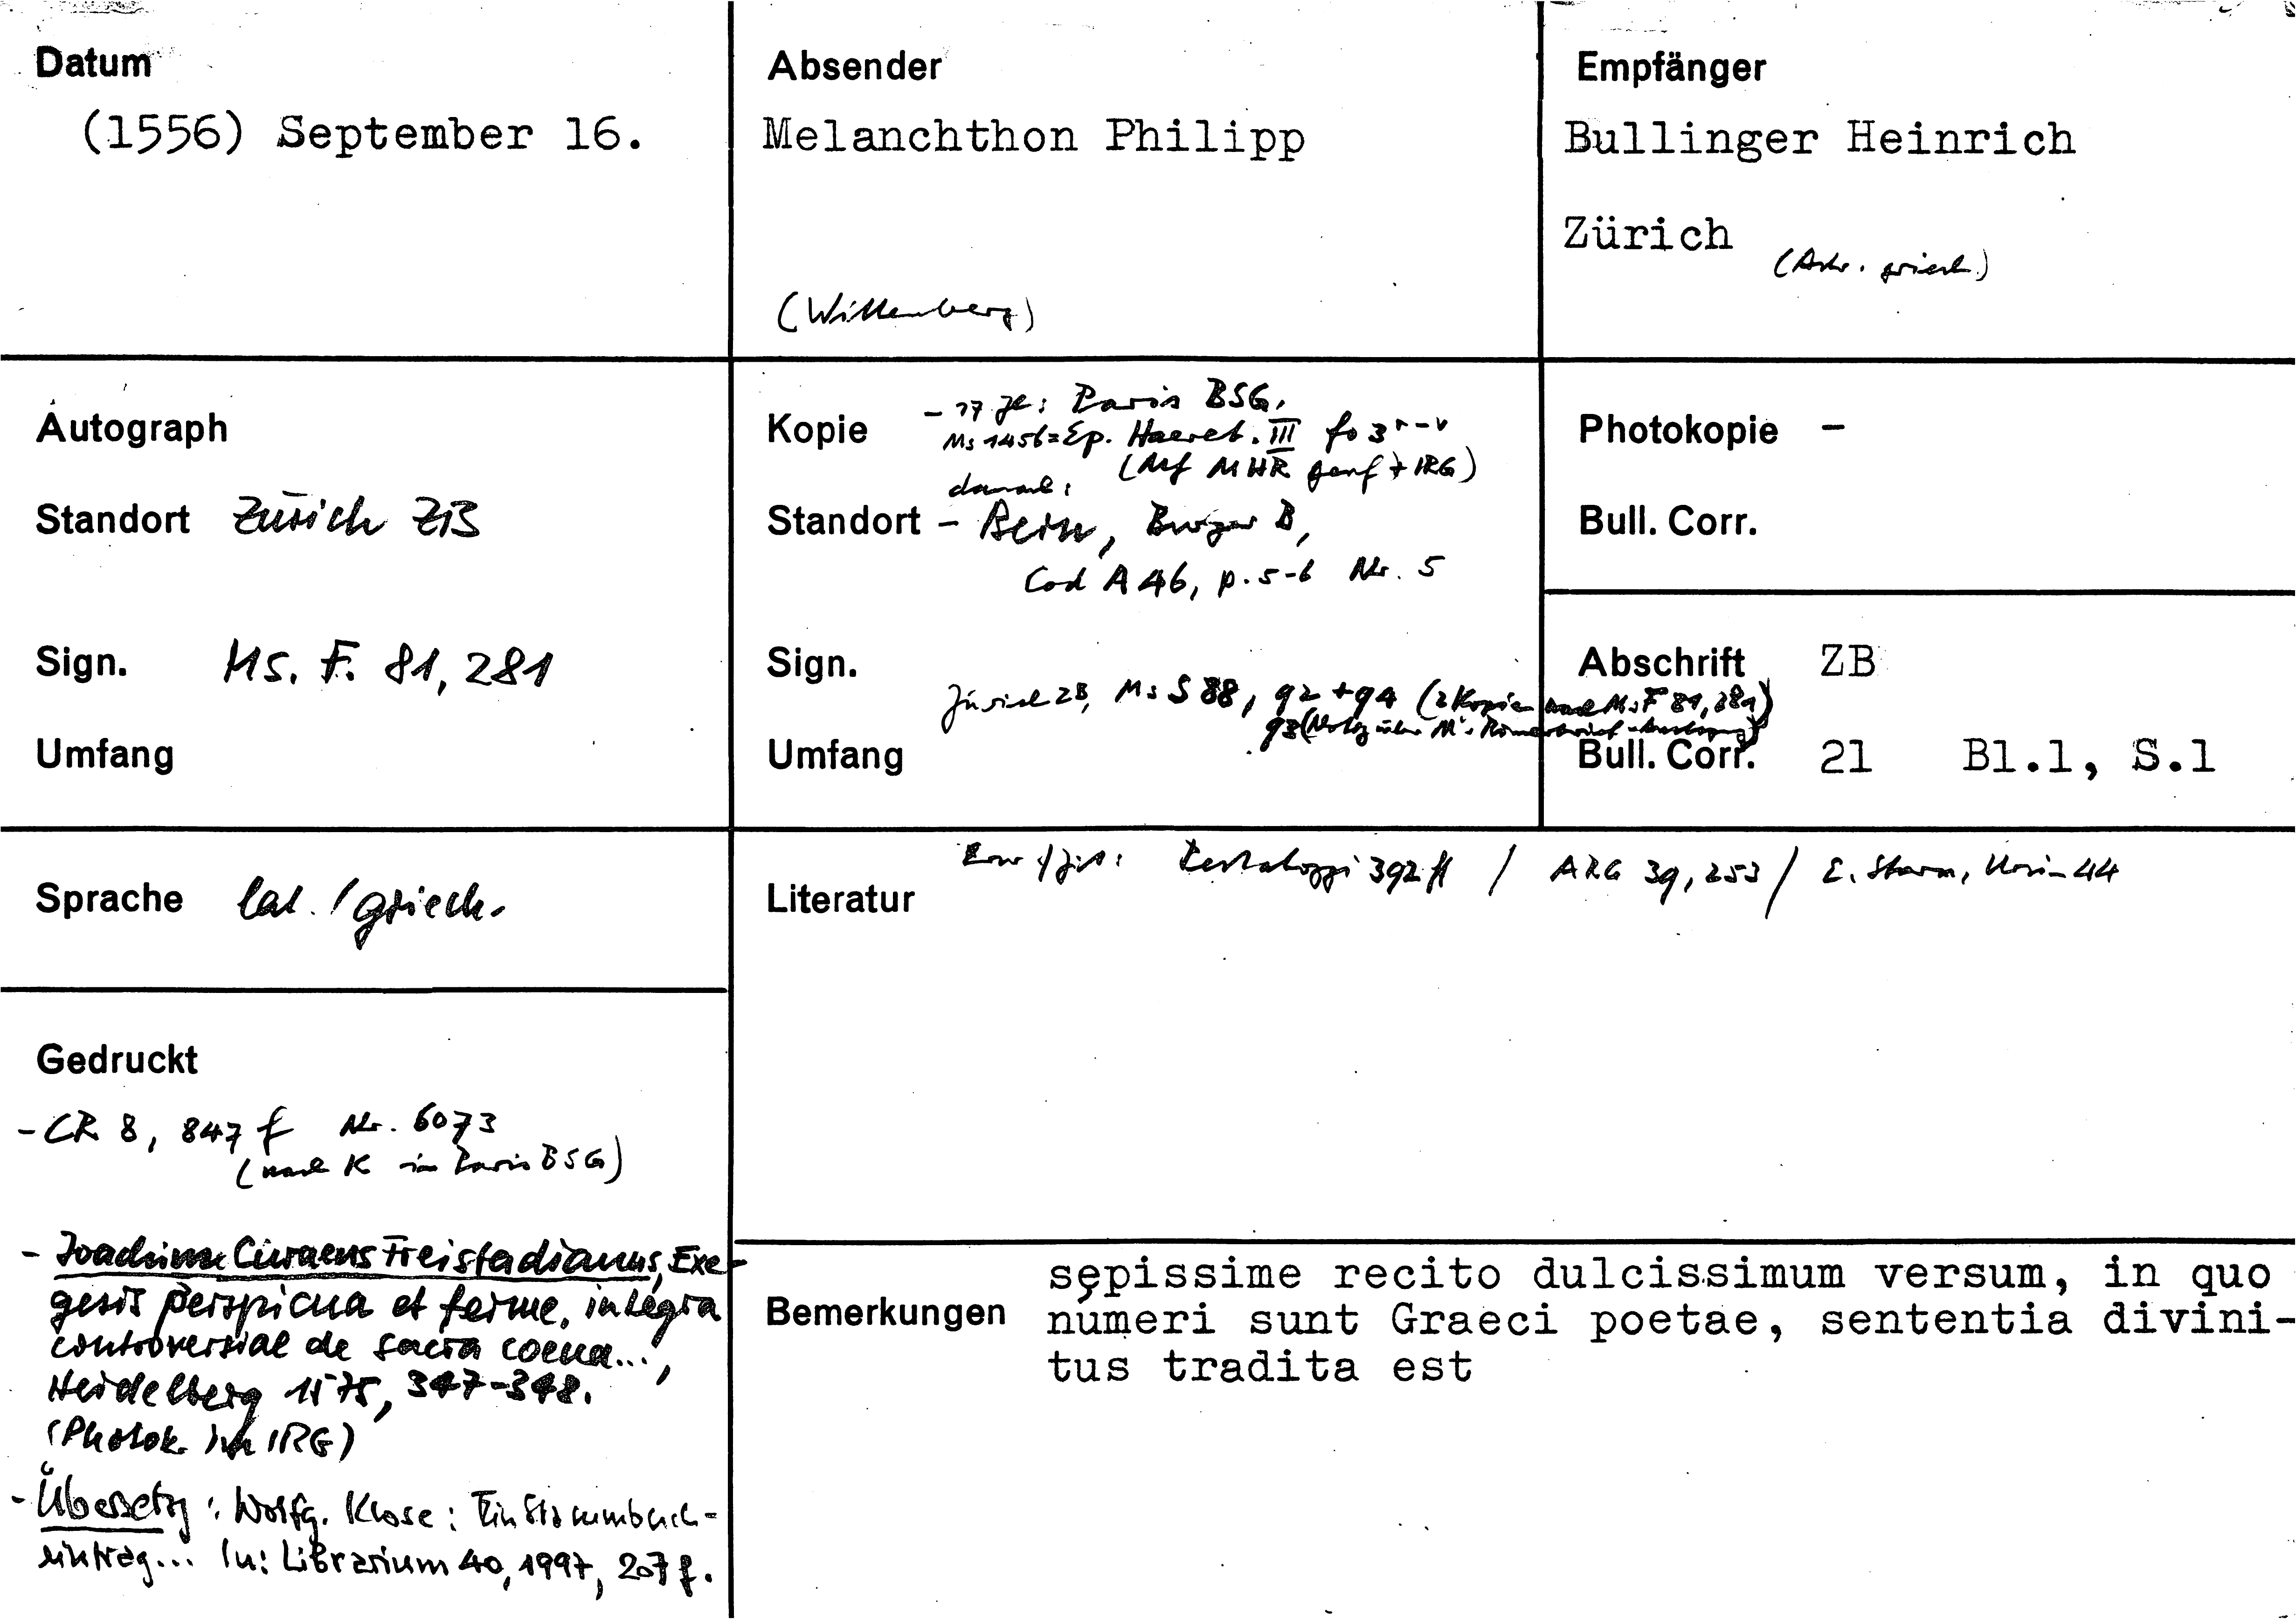 Datum
(1556) September 16.
Absender
Melanchthon Philipp
(Wittenberg)
Empfänger
Bullinger Heinrich
Zürich
(Adr. griech.)
Autograph
Standort Zürich ZB
Sign. Ms. F. 81, 281
Umfang
Kopie
- 17. Jh: Paris BSG,
Ms 1456 = Ep. Haeret. III fo 3 r-v
(Mf MHR Genf + IRG)
danach:
Standort - Bern, Burger B,
Cod A 46, p. 5-6 Nr. 5
Sign.
Zürich ZB, Ms S 88, 92 + 94 (2 Kopien nach Ms F 81, 281)
93 (Notiz über M's Römerbrief-Auslegung)
Umfang
Photokopie -
Bull. Corr.
Abschrift ZB
Bull. Corr. 21 Bl.1, S.1
Sprache lat. / griech.
Literatur
Pestalozzi 392 ff / ARG 39, 253 / E. 44
Gedruckt
- CR 8, 847 f Nr. 6073
(nach K in Paris BSG)
- Joachim Curaeus Freistadianus, Exe-
gesis perspicua et ferme integra
controversiae de sacra coena...,
Heidelberg 1575, 347-348.
(Photok. im IRG)
- Übersetzg: Wolfg. Klose: Ein Stammbuch-
eintrag... In: Librarium 40, 1997, 207 f.
Bemerkungen
sepissime recito dulcissimum versum, in quo
numeri sunt Graeci poetae, sententia divini-
tus tradita est